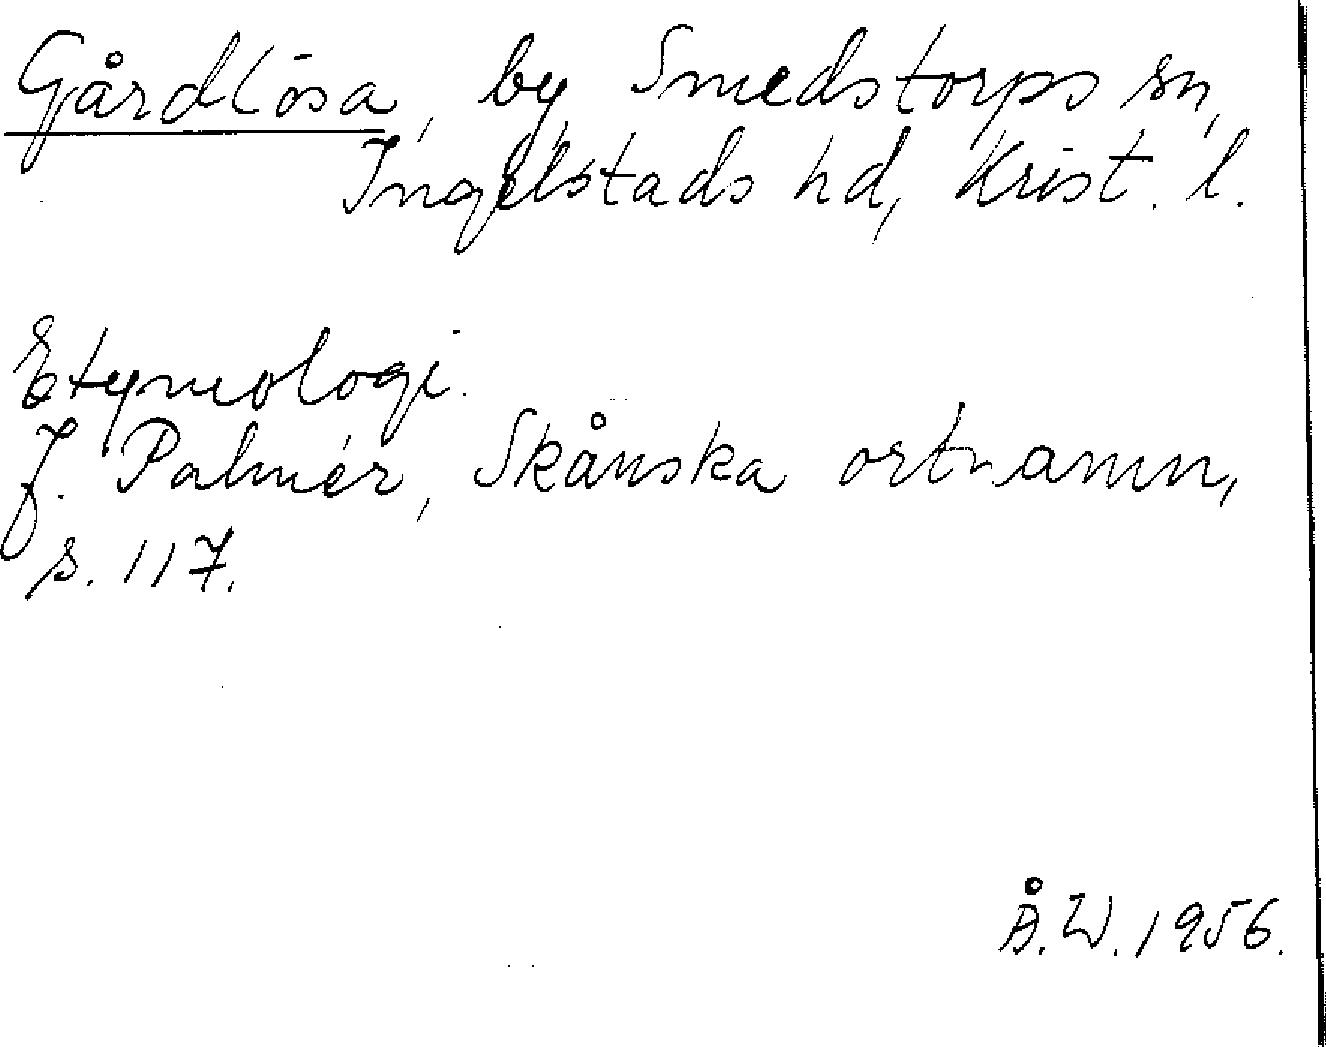 Gårdlösa, by, Smedstorps sn,
Ingelstads hd, Krist. l.
Etymologi.
J. Palmér, Skånska ortnamn,
s. 117.
Å.W. 1956.